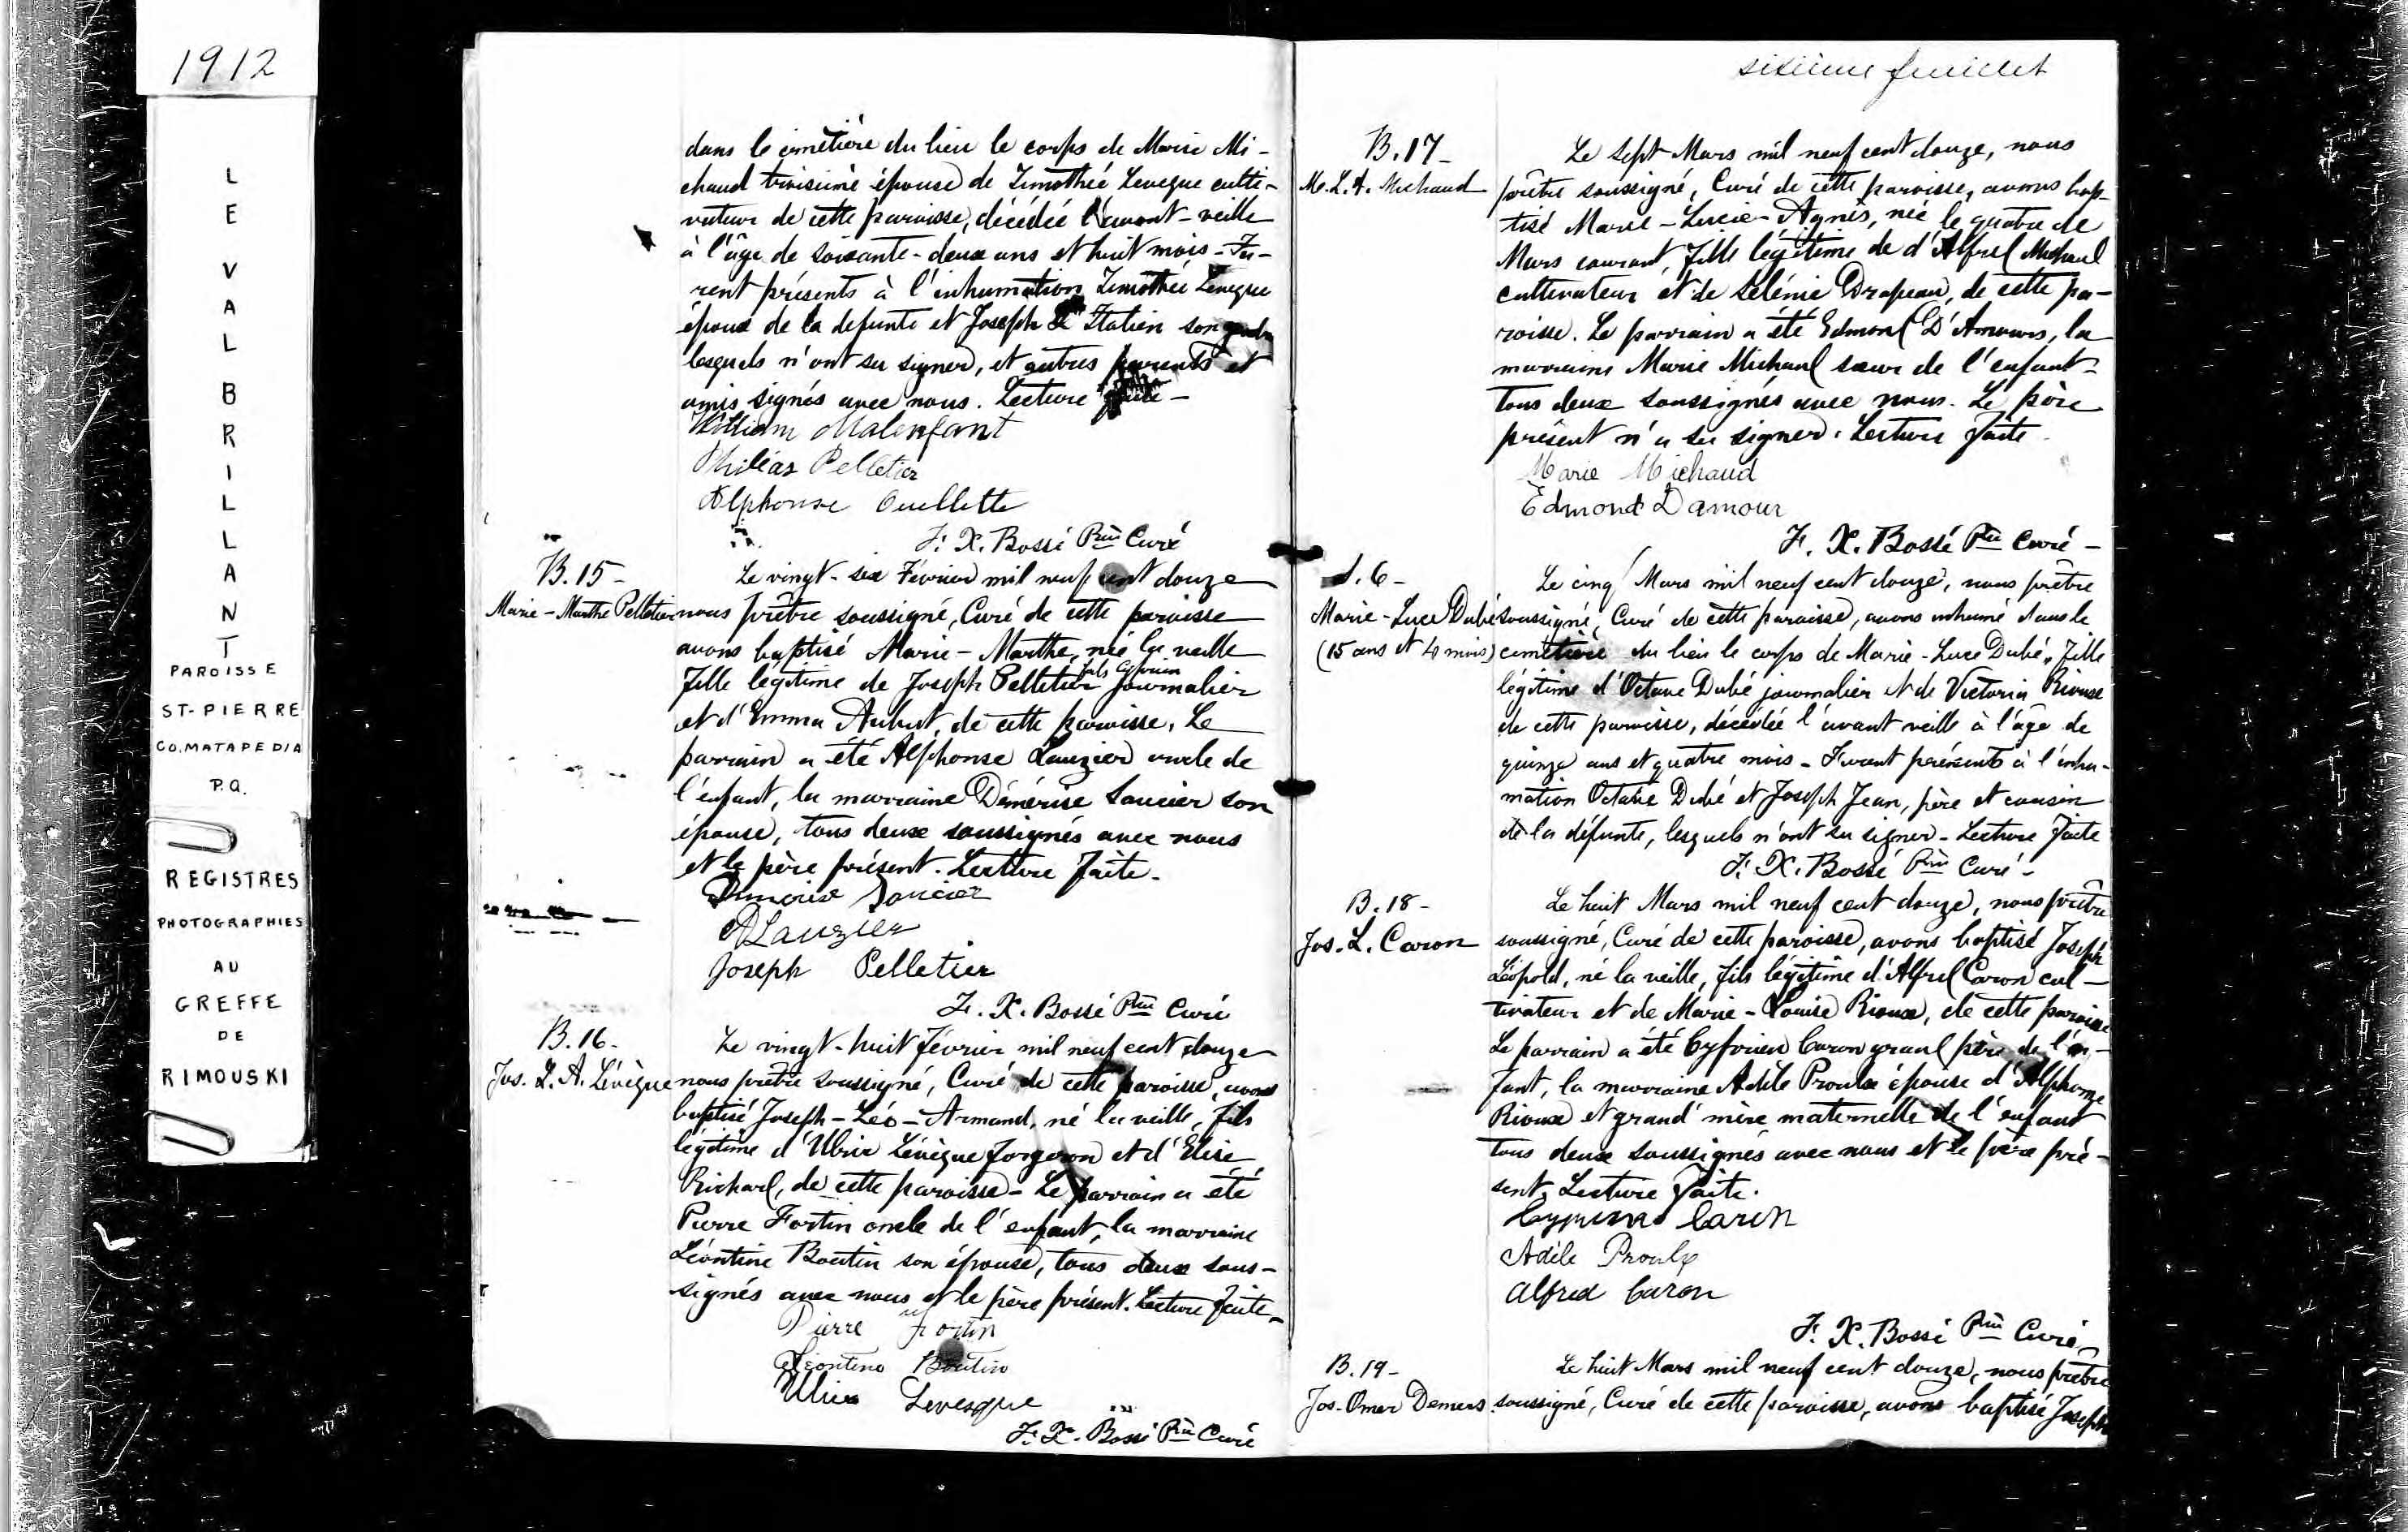 1912
LE VAL BRILLANT
PAROISSE
ST-PIERRE
CO. MATAPEDIA
P.Q.
REGISTRES
PHOTOGRAPHIES
AU
GREFFE
DE
RIMOUSKI
dans le cimetière du lieu le corps de Marie Mi-
chaud troisième épouse de Timothée Leveque culti-
vateur de cette paroisse, décédée l'avant-veille
à l'âge de soixante-deux ans et huit mois - Fu-
rent présents à l'inhumation Timothée Leveque
époux de la defunte et Joseph Italien son gendre
lesquels n'ont su signer, et autres parents et
amis signés avec nous. Lecture faite -
William Malenfant
Philéas Pelletier
Alphonse Ouellette
F. X. Bossé Ptre Curé
B. 15 -
Marie-Marthe Pelletier
Le vingt-six Février mil neuf cent douze
nous prêtre soussigné, Curé de cette paroisse
avons baptisé Marie-Marthe, née la veille
fille légitime de Joseph Pelletier fils Cyprien journalier
et d'Emma Aubut, de cette paroisse. Le
parrain a été Alphonse Lauzier oncle de
l'enfant, la marraine Démérise Saucier son
épouse, tous deux soussignés avec nous
et le père présent. Lecture faite.
Démerise Soucier
A Lauzier
Joseph Pelletier
F. X. Bossé Ptre Curé
B. 16 -
Jos. L. A. Lévèque
Le vingt-huit Février mil neuf cent douze
nous prêtre soussigné, Curé de cette paroisse, avons
baptisé Joseph-Léo-Armand, né la veille, fils
légitime d'Ulric Lévèque forgeron et d'Elise
Richard, de cette paroisse - Le parrain a été
Pierre Fortin oncle de l'enfant, la marraine
Léontine Boutin son épouse, tous deux sous-
signés avec nous et le père présent. Lecture faite -
Pierre Fortin
Léontine Boutin
Ulric Levesque
F. X. Bossé Ptre Curé
sixième feuillet
B. 17 -
M. L. A. Michaud
Le sept Mars mil neuf cent douze, nous
prêtre soussigné, Curé de cette paroisse, avons bap-
tisé Marie-Lucie-Agnès, née le quatre de
Mars courant, fille légitime de d'Alfred Michaud
cultivateur et de Selénie Drapeau, de cette pa-
roisse. Le parrain a été Edmond D'Amours, la
marraine Marie Michaud sœur de l'enfant -
tous deux soussignés avec nous. Le père
présent n'a su signer. Lecture faite -
Marie Michaud
Edmond Damour
F. X. Bossé Ptre Curé -
S. 6 -
Marie-Luce Dubé
(15 ans et 4 mois)
Le cinq Mars mil neuf cent douze, nous prêtre
soussigné, Curé de cette paroisse, avons inhumé dans le
cimetière du lieu le corps de Marie-Luce Dubé, fille
légitime d'Octave Dubé journalier et de Victoria Rioux
de cette paroisse, décédée l'avant veille à l'âge de
quinze ans et quatre mois - Furent présents à l'inhu-
mation Octave Dubé et Joseph Jean, père et cousin
de la défunte, lesquels n'ont su signer - Lecture faite
F. X. Bossé Ptre Curé -
B. 18 -
Jos. L. Caron
Le huit Mars mil neuf cent douze, nous prêtre
soussigné, Curé de cette paroisse, avons baptisé Joseph
Léopold, né la veille, fils légitime d'Alfred Caron cul-
tivateur et de Marie-Louise Rioux, de cette paroisse
Le parrain a été Cyprien Caron grand père de l'en-
fant, la marraine Adèle Proulx épouse d'Alphonse
Rioux et grand'mère maternelle de l'enfant
tous deux soussignés avec nous et le père pré-
sent. Lecture faite.
Cyprien Caron
Adèle Proulx
Alfred Caron
F. X. Bossé Ptre Curé -
B. 19 -
Jos. Omer Demers
Le huit Mars mil neuf cent douze, nous prêtre
soussigné, Curé de cette paroisse, avons baptisé Joseph